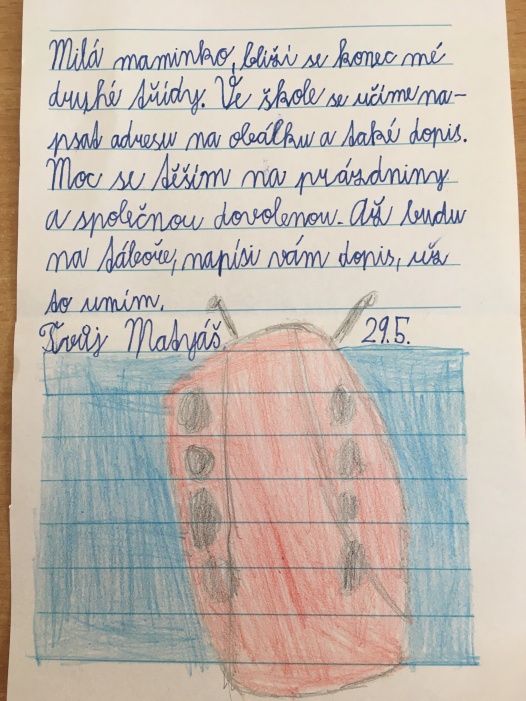 Milá maminko, blíží se konec mé
druhé třídy. Ve škole se učíme na-
psat adresu na obálku a také dopis.
Moc se těším na prázdniny
a společnou dovolenou. Až budu
na táboře, napíši vám dopis, už
to umím.
Tvůj Matyáš 29.5.